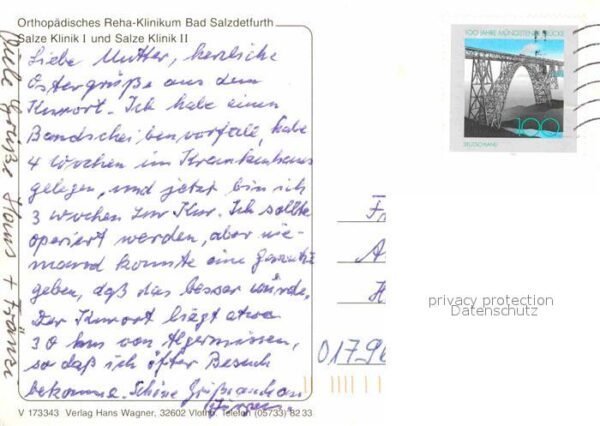 Orthopädisches Reha-Klinikum Bad Salzdetfurth
Salze Klinik I und Salze Klinik II
Liebe Mutter, herzliche
Ostergrüße aus dem
Kurort. Ich habe einen
Bandscheibenvorfall, habe
4 Wochen im Krankenhaus
gelegen, und jetzt bin ich
3 Wochen zur Kur. Ich sollte
operiert werden, aber nie-
mand konnte eine Garantie
geben, daß das besser würde.
Der Kurort liegt etwa
30 km von Algermissen,
so daß ich öfter Besuch
bekomme. Schöne Grüße auch an
Jürgen.
Viele Grüße Hans + Fränze
V 173343 Verlag Hans Wagner, 32602 Vlotho, Telefon (05733) 8233
100 JAHRE MÜNGSTENER BRÜCKE
100
DEUTSCHLAND
F
A
H
privacy protection
Datenschutz
01796